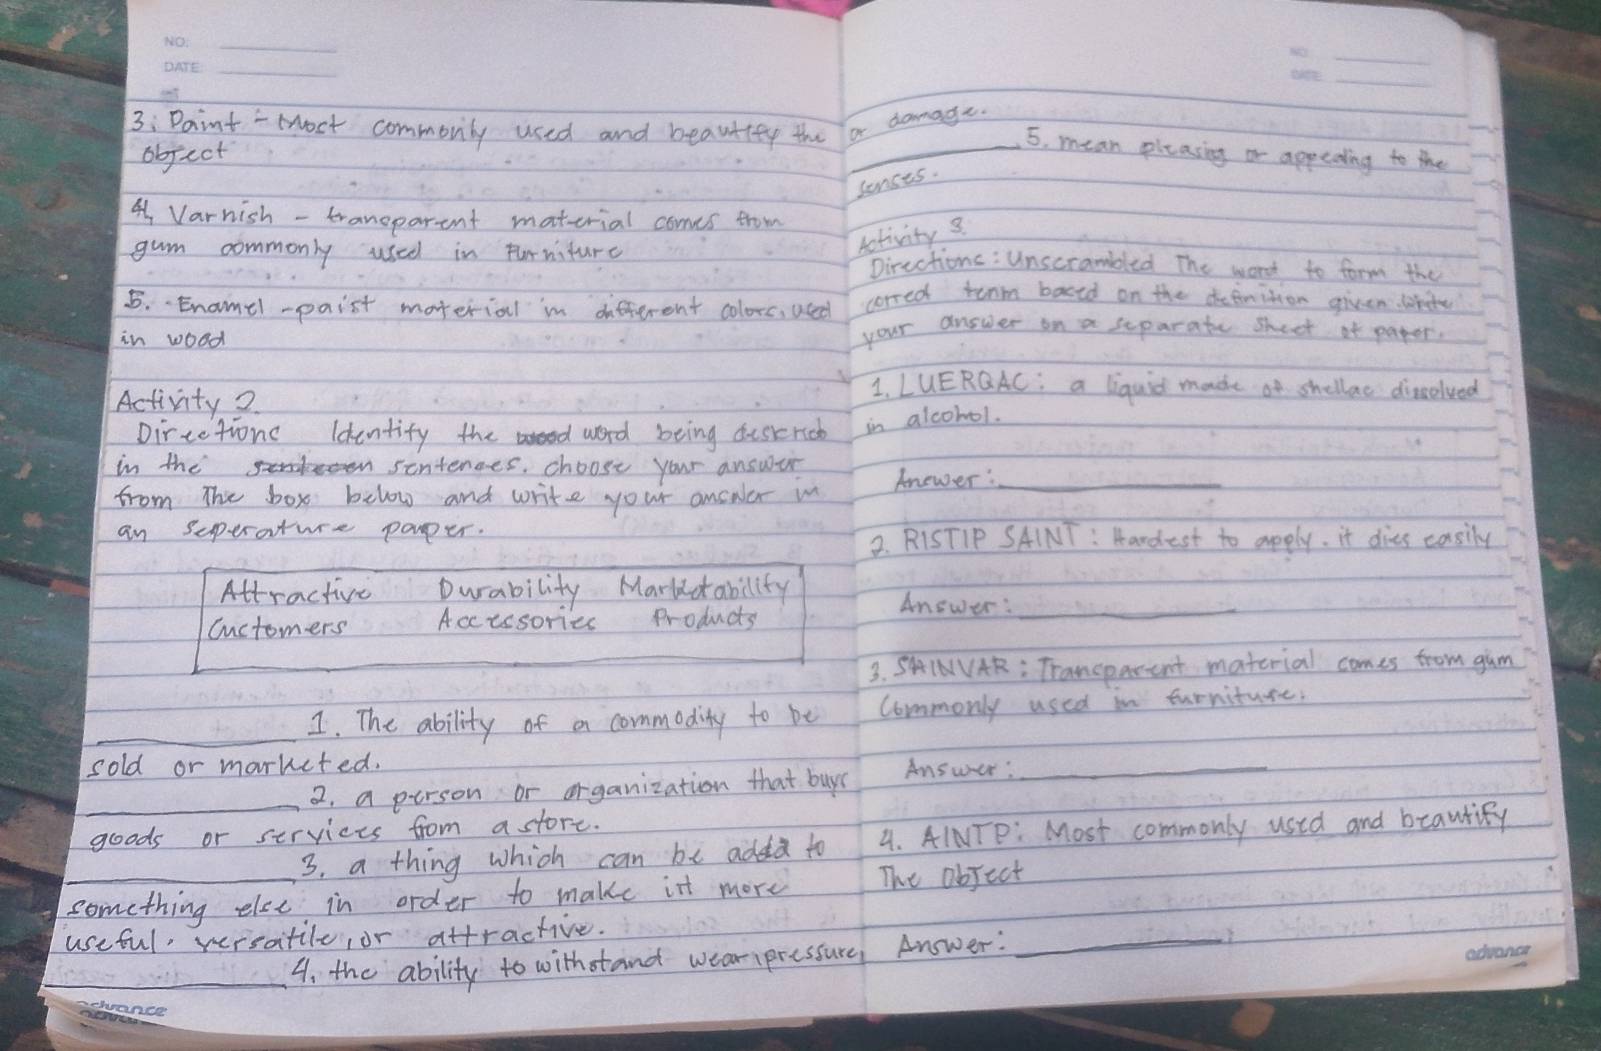 NO:
DATE:
3. Paint - Most commonly used and beautify the
object
4, Varnish - transparent material comes from
gum commonly used in Furniture
5. Enamel - paist material in different colors, used
in wood
Activity 2.
Directions Identify the word being describ
in the sentences. choose your answer
from The box below and write your answer in
an seperature paper.
Attractive Durability Marketability
Customers Accessories Products
1. The ability of a commodity to be
sold or marketed.
2. a person or organization that buys
goods or services from a store.
3. a thing which can be added to
something else in order to make it more
useful, versatile, or attractive.
4. the ability to withstand wear, pressure,
advance
NO:
DATE:
or damage.
5. mean pleasing or appealing to the
senses.
Activity 3.
Directions: Unscrambled The word to form the
correct term based on the definition given. write
your answer on a separate sheet of paper.
1. LUERQAC: a liquid made of shellac dissolved
in alcohol.
Answer:
2. RISTIP SAINT: Hardest to apply. it dies easily
Answer:
3. SAINVAR: Transparent material comes from gum
Commonly used in furniture.
Answer:
4. AINTP: Most commonly used and beautify
The object
Answer:
advance